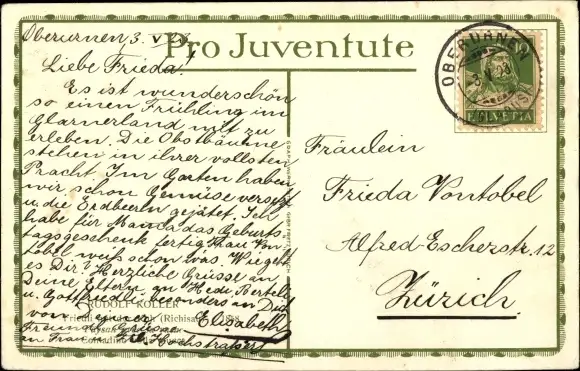 Pro Juventute
Oberurnen, 3. V
Liebe Frieda!
Es ist wunderschön
so einen Frühling im
Glarnerland mit zu
erleben. Die Obstbäume
stehen in ihrer vollsten
Pracht. Im Garten haben
wir schon Gemüse versetzt
u. die Erdbeeren gejätet. Ich
habe für Mama das Geburts-
tagsgeschenk fertig, Frau Von-
tobel weiß schon was. Wie geht
es Dir? Herzliche Grüsse an
Deine Eltern, an Hedi, Berteli
u. Gottfriedli, besonders an Dich
von Elisabeth
RUDOLF KOLLER
Freundl. Grüsse
an Frau Hochstrasser
OBERURNEN
3. V. 28
HELVETIA
Fräulein
Frieda Vontobel
Alfred-Escherstr. 12
Zürich.